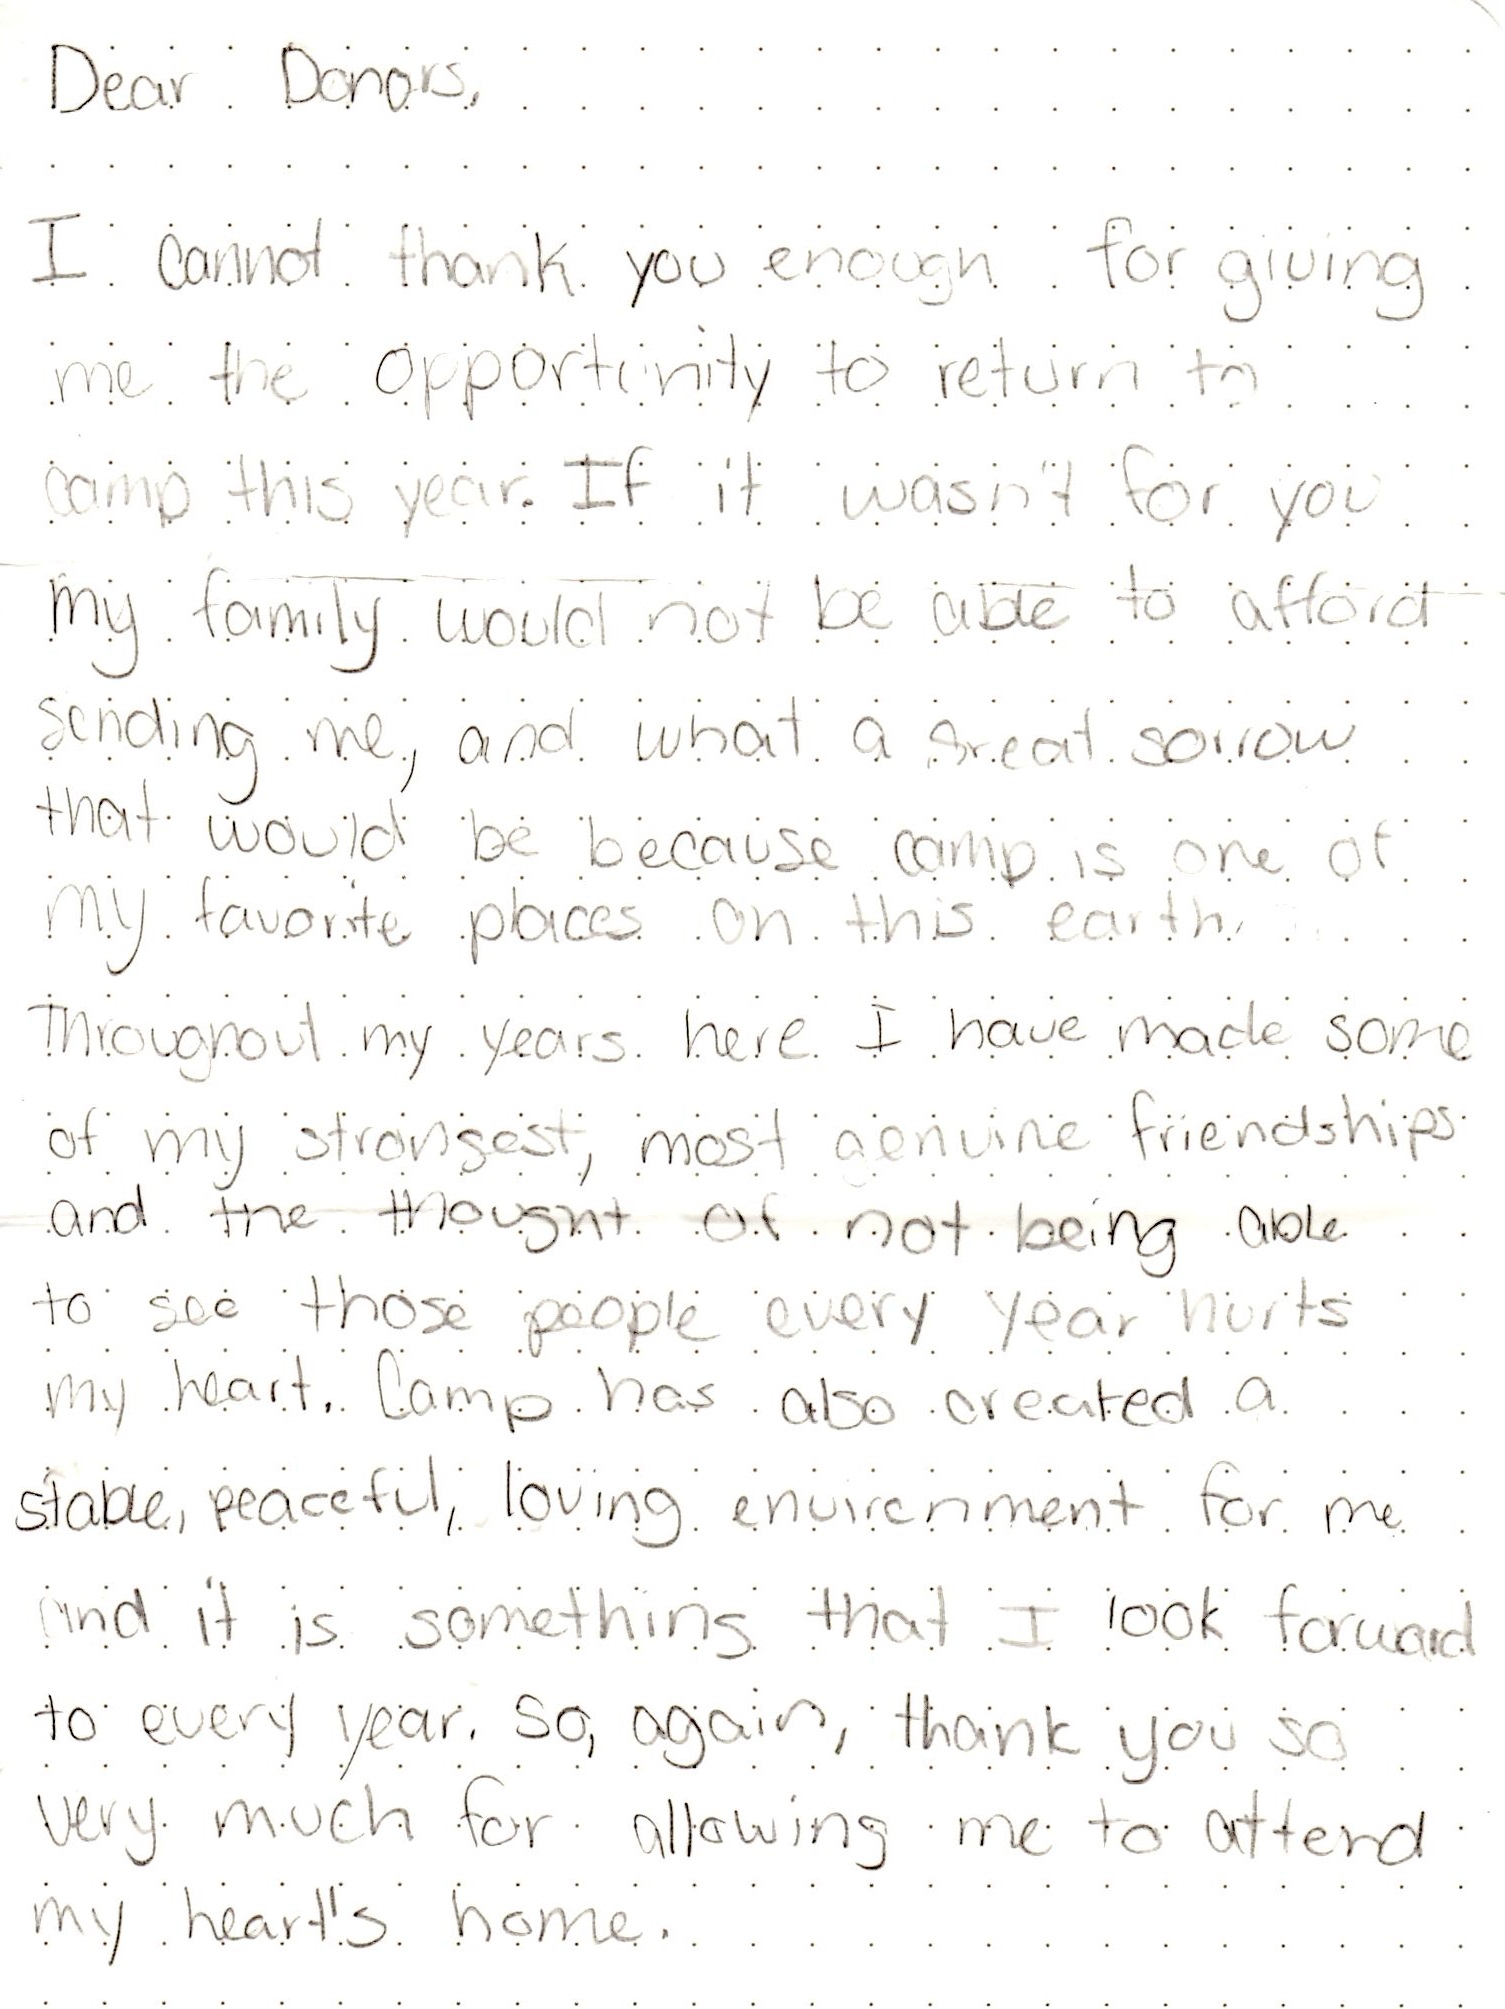 Dear Donors,
I cannot thank you enough for giving
me the opportunity to return to
camp this year. If it wasn't for you
my family would not be able to afford
sending me, and what a great sorrow
that would be because camp is one of
my favorite places on this earth.
Throughout my years here I have made some
of my strongest, most genuine friendships
and the thought of not being able
to see those people every year hurts
my heart. Camp has also created a
stable, peaceful, loving environment for me
and it is something that I look forward
to every year. So, again, thank you so
very much for allowing me to attend
my heart's home.